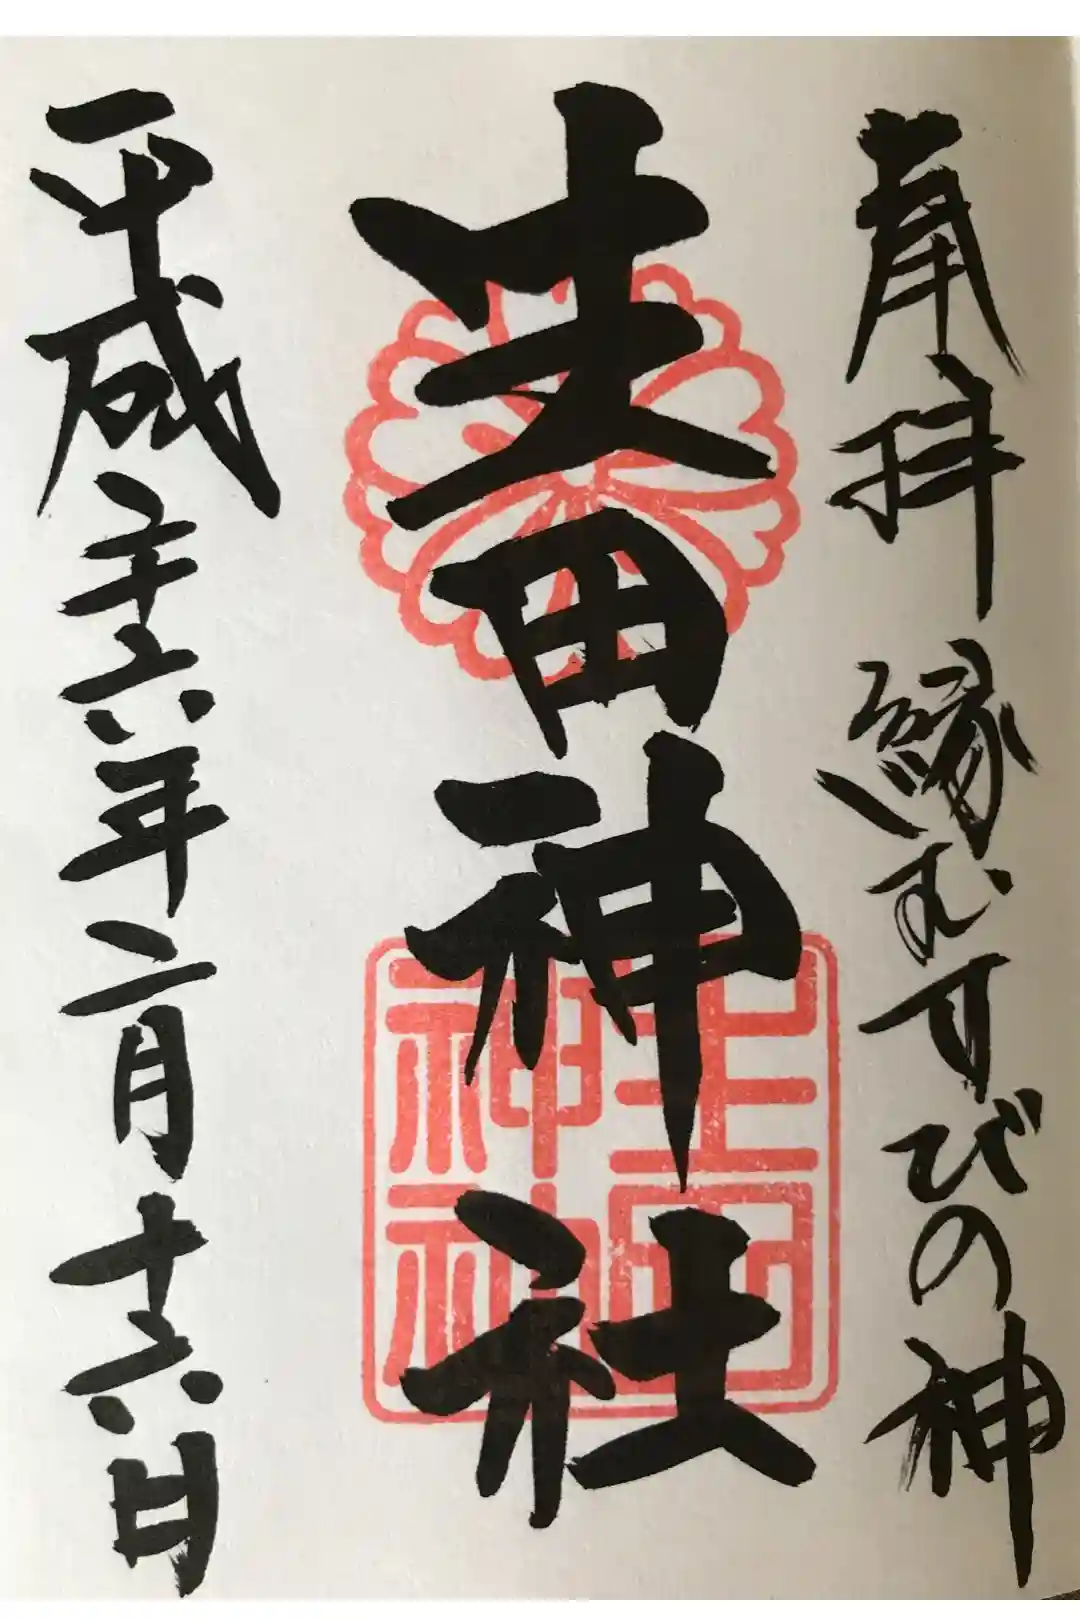 奉拝 縁むすびの神
生田神社
平成二十六年二月十六日
生田神社